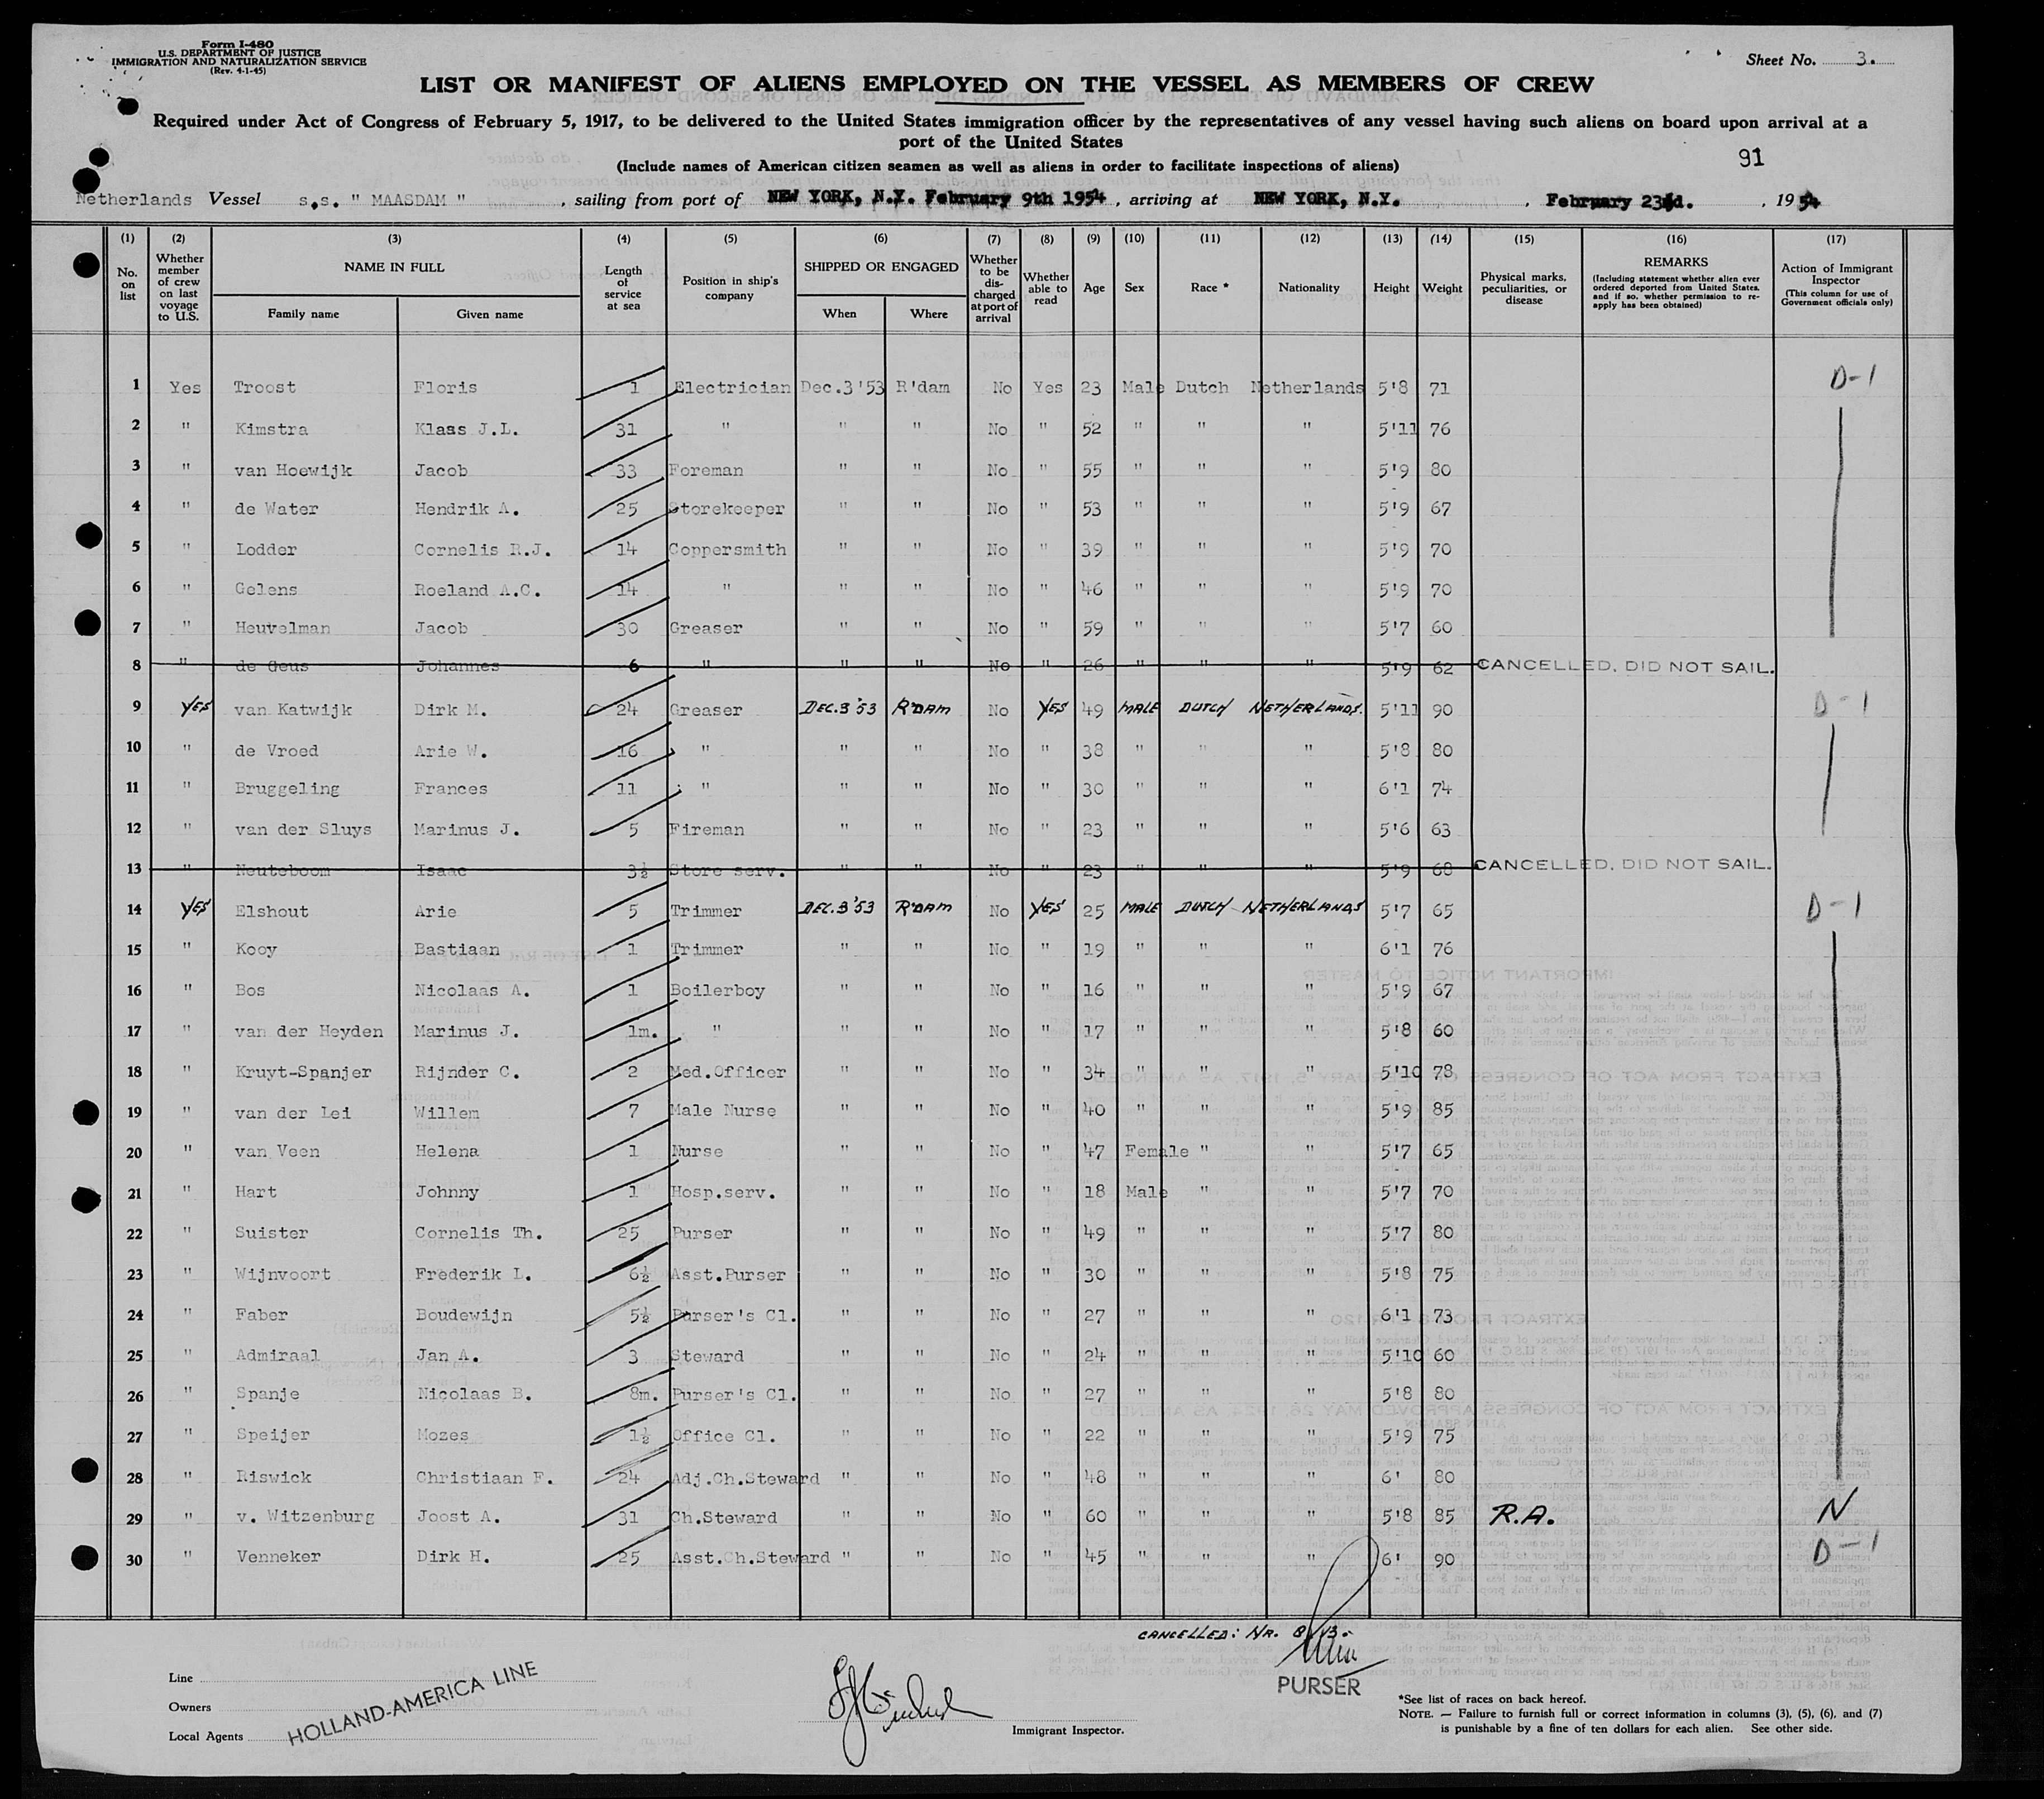 Form I-480
U.S. DEPARTMENT OF JUSTICE
IMMIGRATION AND NATURALIZATION SERVICE
(Rev. 4-1-45)
Sheet No. 3.
LIST OR MANIFEST OF ALIENS EMPLOYED ON THE VESSEL AS MEMBERS OF CREW
Required under Act of Congress of February 5, 1917, to be delivered to the United States immigration officer by the representatives of any vessel having such aliens on board upon arrival at a
port of the United States
(Include names of American citizen seamen as well as aliens in order to facilitate inspections of aliens)
91
Netherlands Vessel s.s. " MAASDAM " , sailing from port of NEW YORK, N.Y. February 9th 1954 , arriving at NEW YORK, N.Y. , February 23d. , 1954
(1) (2) (3) (4) (5) (6) (7) (8) (9) (10) (11) (12) (13) (14) (15) (16) (17)
No. on list
Whether member of crew on last voyage to U.S.
NAME IN FULL
Family name Given name
Length of service at sea
Position in ship's company
SHIPPED OR ENGAGED
When Where
Whether to be discharged at port of arrival
Whether able to read
Age Sex Race * Nationality Height Weight
Physical marks, peculiarities, or disease
REMARKS
(Including statement whether alien ever ordered deported from United States, and if so, whether permission to re-apply has been obtained)
Action of Immigrant Inspector
(This column for use of Government officials only)
1 Yes Troost Floris 1 Electrician Dec.3'53 R'dam No Yes 23 Male Dutch Netherlands 5'8 71 D-1
2 " Kimstra Klaas J.L. 31 " " " No " 52 " " " 5'11 76
3 " van Hoewijk Jacob 33 Foreman " " No " 55 " " " 5'9 80
4 " de Water Hendrik A. 25 Storekeeper " " No " 53 " " " 5'9 67
5 " Lodder Cornelis R.J. 14 Coppersmith " " No " 39 " " " 5'9 70
6 " Gelens Roeland A.C. 14 " " " No " 46 " " " 5'9 70
7 " Heuvelman Jacob 30 Greaser " " No " 59 " " " 5'7 60
8 " de Geus Johannes 6 " " " No " 26 " " " 5'9 62 CANCELLED, DID NOT SAIL.
9 YES van Katwijk Dirk M. 24 Greaser DEC.3'53 R'DAM No YES 49 MALE DUTCH NETHERLANDS. 5'11 90 D-1
10 " de Vroed Arie W. 16 " " " No " 38 " " " 5'8 80
11 " Bruggeling Frances 11 " " " No " 30 " " " 6'1 74
12 " van der Sluys Marinus J. 5 Fireman " " No " 23 " " " 5'6 63
13 " Neuteboom Isaac 3½ Store serv. " " No " 23 " " " 5'9 68 CANCELLED, DID NOT SAIL.
14 YES Elshout Arie 5 Trimmer DEC.3'53 R'DAM No YES 25 MALE DUTCH NETHERLANDS 5'7 65 D-1
15 " Kooy Bastiaan 1 Trimmer " " No " 19 " " " 6'1 76
16 " Bos Nicolaas A. 1 Boilerboy " " No " 16 " " " 5'9 67
17 " van der Heyden Marinus J. 1m. " " " No " 17 " " " 5'8 60
18 " Kruyt-Spanjer Rijnder C. 2 Med.Officer " " No " 34 " " " 5'10 78
19 " van der Lei Willem 7 Male Nurse " " No " 40 " " " 5'9 85
20 " van Veen Helena 1 Nurse " " No " 47 Female " " 5'7 65
21 " Hart Johnny 1 Hosp.serv. " " No " 18 Male " " 5'7 70
22 " Suister Cornelis Th. 25 Purser " " No " 49 " " " 5'7 80
23 " Wijnvoort Frederik L. 6½ Asst.Purser " " No " 30 " " " 5'8 75
24 " Faber Boudewijn 5½ Purser's Cl. " " No " 27 " " " 6'1 73
25 " Admiraal Jan A. 3 Steward " " No " 24 " " " 5'10 60
26 " Spanje Nicolaas B. 8m. Purser's Cl. " " No " 27 " " " 5'8 80
27 " Speijer Mozes 1½ Office Cl. " " No " 22 " " " 5'9 75
28 " Riswick Christiaan F. 24 Adj.Ch.Steward " " No " 48 " " " 6' 80
29 " v. Witzenburg Joost A. 31 Ch.Steward " " No " 60 " " " 5'8 85 R.A. N
30 " Venneker Dirk H. 25 Asst.Ch.Steward " " No " 45 " " " 6' 90 D-1
CANCELLED: NR. 8, 13.
PURSER
Line
Owners
Local Agents
HOLLAND-AMERICA LINE
Immigrant Inspector.
*See list of races on back hereof.
NOTE. — Failure to furnish full or correct information in columns (3), (5), (6), and (7)
is punishable by a fine of ten dollars for each alien. See other side.